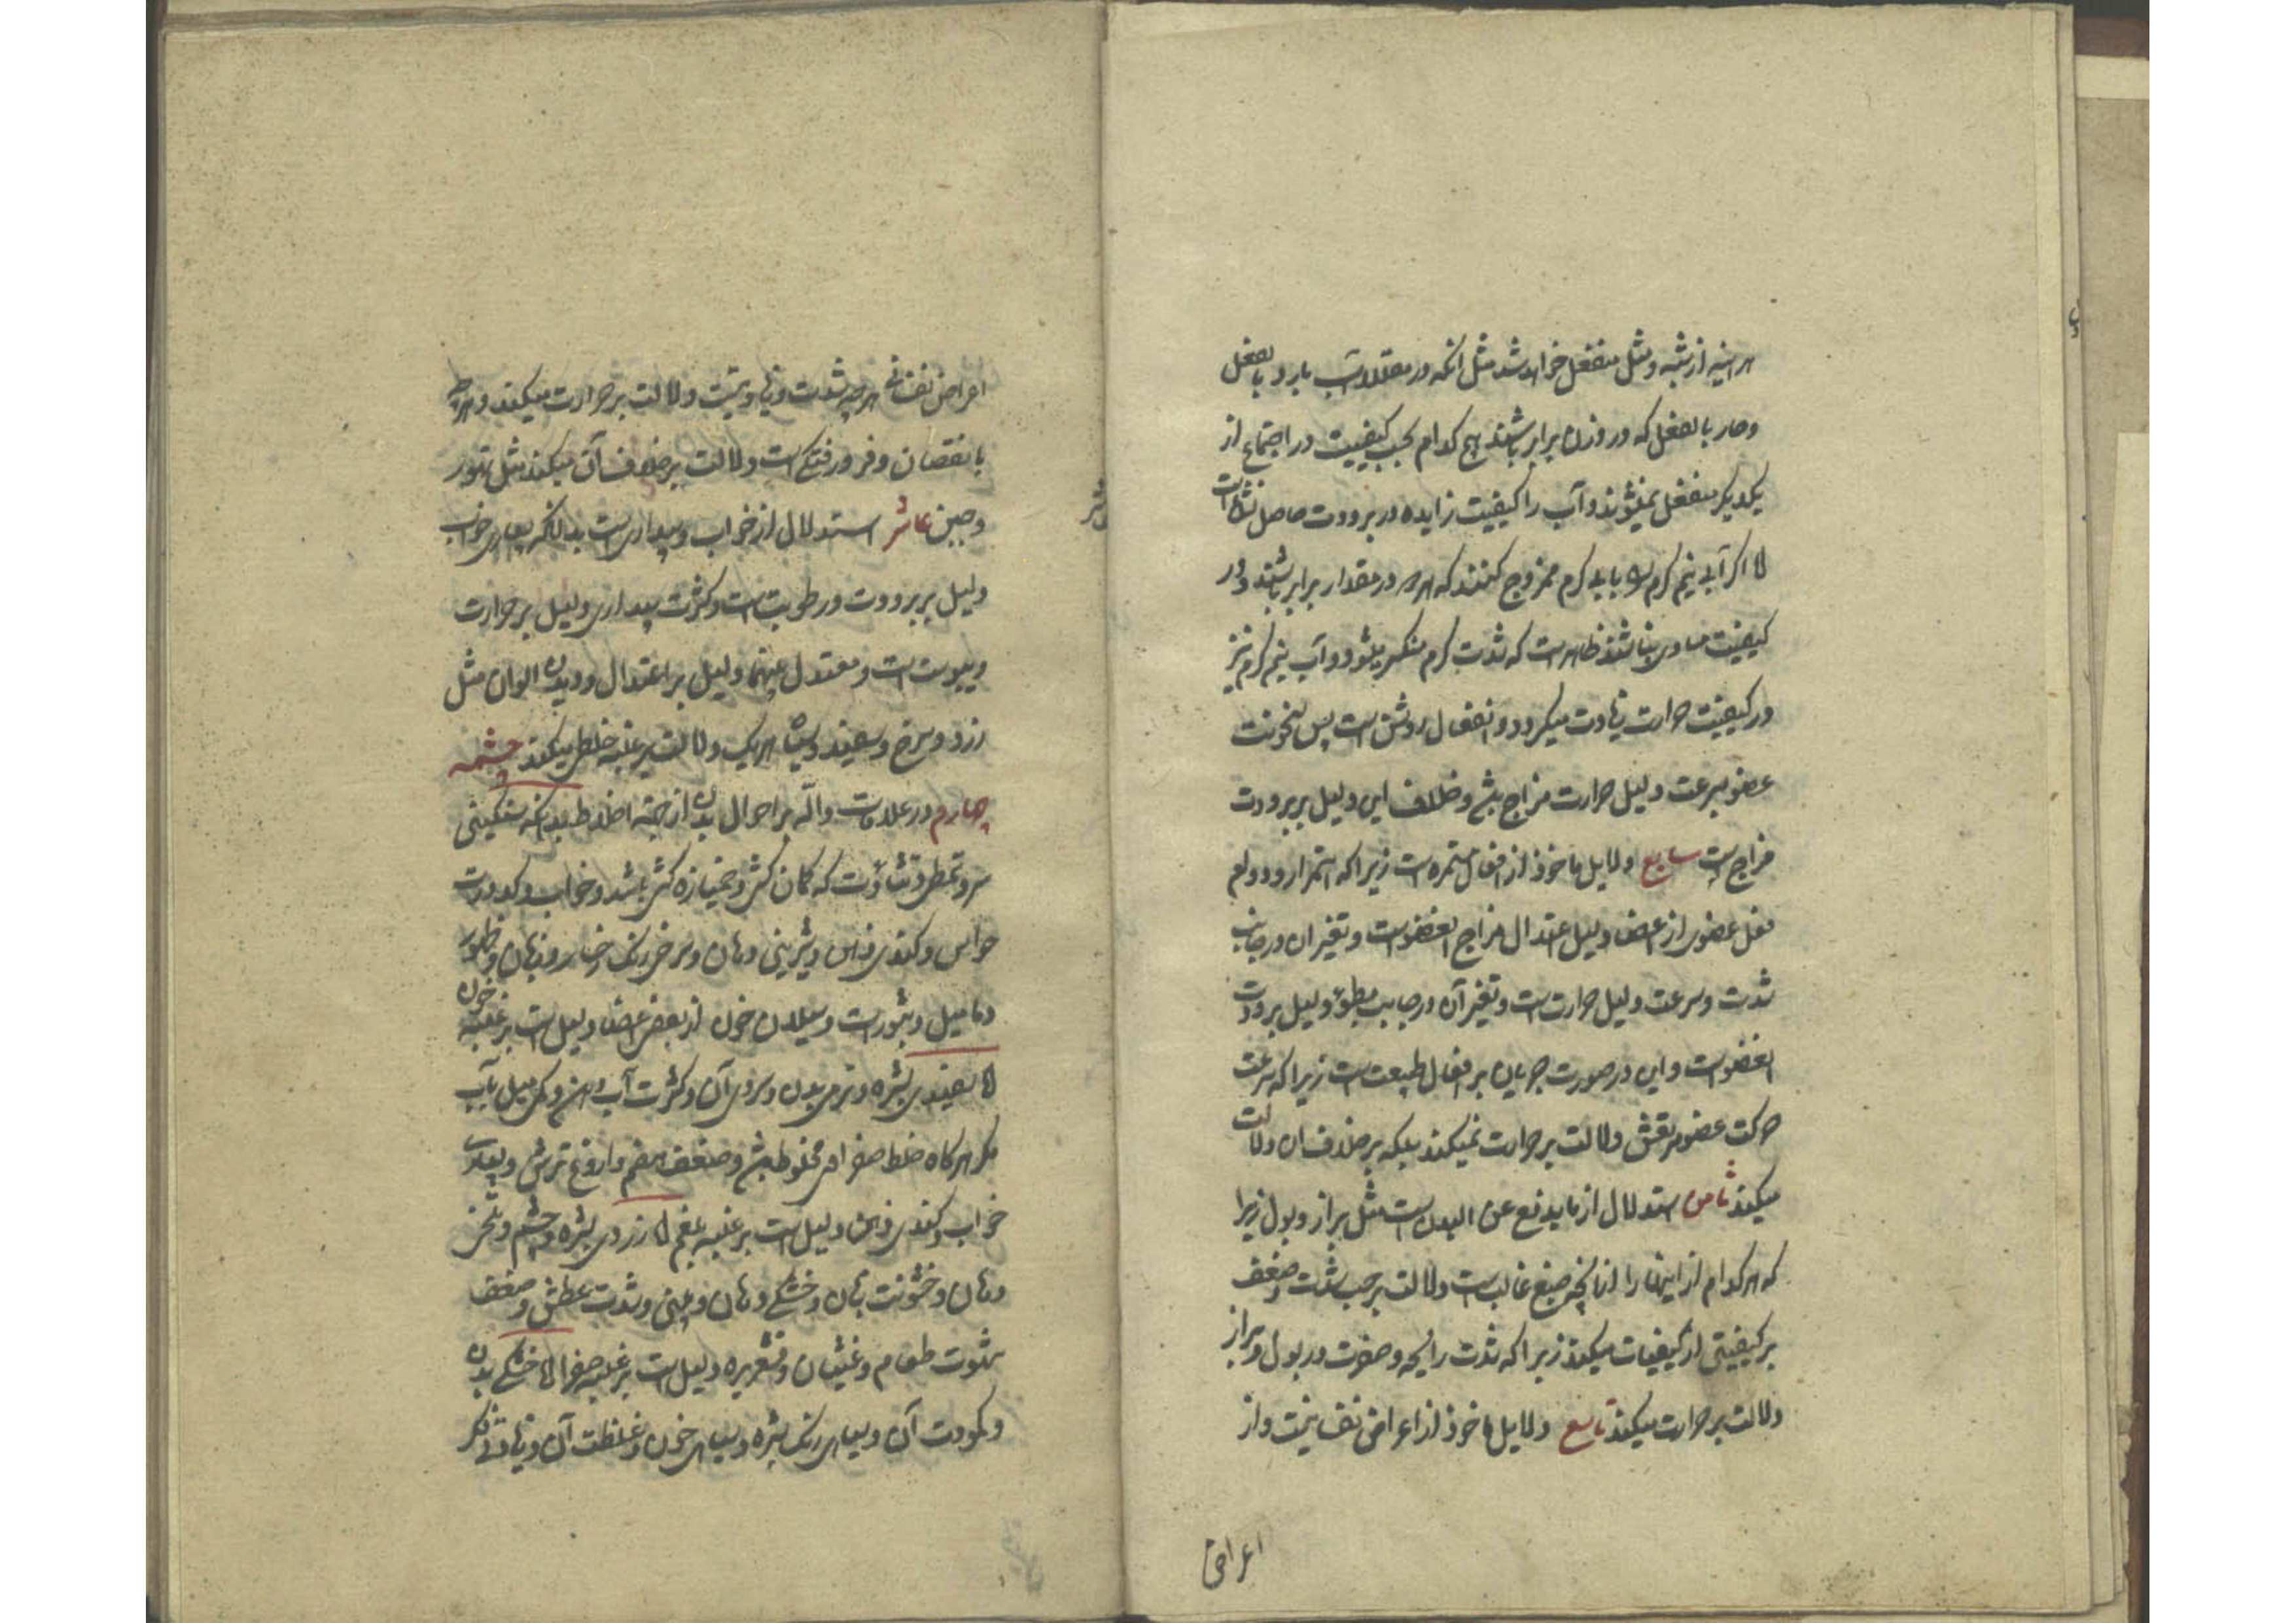 هر اینه از شبه و مثل منفعل خواهد شد مثل انکه در مقللات آب بارد بالفعل
و حار بالفعل که در وزن برابر باشند هیچ کدام بحسب کیفیت در اجتماع از
یکدیکر منفعل نمیشوند و آب را کیفیت زایده در برودت حاصل نشده است
اما اکر آب نیم کرم را با آب کرم ممزوج کنند که هر دو در مقدار برابر باشند و در
کیفیت مساوی نباشند ظاهر است که شدت کرم منکسر میشود و آب نیم کرم نیز
در کیفیت حرارت زیادت میکردد و انفعال روشن است پس سخونت
عضو بسرعت دلیل حرارت مزاج باشد و خلاف این دلیل بر برودت
مزاج است سابع دلایل ماخوذ از افعال مستمره است زیرا که استمرار و دوام
فعل عضوی از اعضا دلیل اعتدال مزاج العضو است و تغیر ان در جانب
شدت و سرعت دلیل حرارت است و تغیر آن در جانب بطوء دلیل برودت
العضو است و این در صورت جریان بر افعال طبیعت است زیرا که سرعت
حرکت عضو مرتعش دلالت بر حرارت نمیکند بلکه بر خلاف ان دلالت
میکند ثامن استدلال از ما یدفع عن البدن است مثل براز و بول زیرا
که هر کدام از اینها را از انچه صبغ غالب است دلالت بر حسب شدت و ضعف
بر کیفیتی از کیفیات میکند زیرا که شدت رایحه و صفرت در بول و براز
دلالت بر حرارت میکند تاسع دلایل ماخوذ از اعراض نفسانیت و از
اعراض
اعراض نفسانی هرچه بشدت و زیادتیت دلالت بر حرارت میکند و هرچه
با نقصان و فرو رفتکی است دلالت بر خلاف آن میکند مثل تهور
و جبن عاشر استدلال از خواب و بیداری است بدانکه بسیاری خواب
دلیل بر برودت و رطوبت است و کثرت بیداری دلیل بر حرارت
و یبوست است و معتدل بینهما دلیل بر اعتدال و دیدن الوان مثل
زرد و سرخ و سفید و سیاه هریک دلالت بر غلبه خلطی میکند چشمه
چهارم در علامات داله بر احوال بدن از جهة اخلاط بدانکه سنکینی
سر و تمطی و تثاوب که کمان کشی و خمیازه کشی باشد و خواب و کدورت
حواس و کندی ذهن و شیرینی دهان و سرخی رنک رخسار و زبان و ظهور
دمامیل و بثورات و سیلان خون از بعض اعضا دلیل است بر غلبه خون
اما سفیدی بشره و نرمی بدن و سردی آن و کثرت آب دهن و کمی میل بآب
مکر هرکاه خلط صفراوی مخلوط باشد و ضعف هضم و اروغ ترش و بسیاری
خواب و کندی ذهن دلیل است بر غلبه بلغم اما زردی بشره و چشم و تلخی
دهان و خشونت زبان و خشکی دهان و بینی و شدت عطش و ضعف
شهوت طعام و غثیان و قشعریره دلیل است بر غلبه صفرا اما خشکی بدن
و کمودت آن و سیاهی رنک بشره و سیاهی خون و غلظت آن و زیادتی فکر